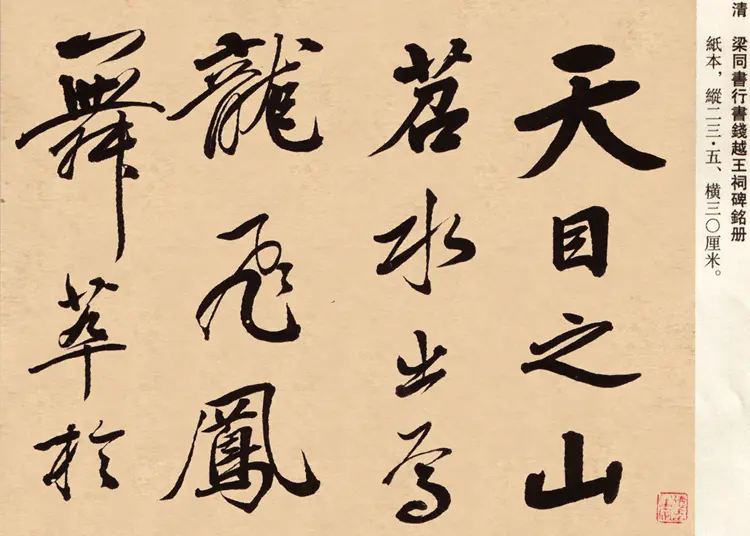 清 梁同書行書錢越王祠碑銘册
紙本，縱二三·五、橫三〇厘米。
天目之山
苕水出焉
龍飛鳳
舞萃於